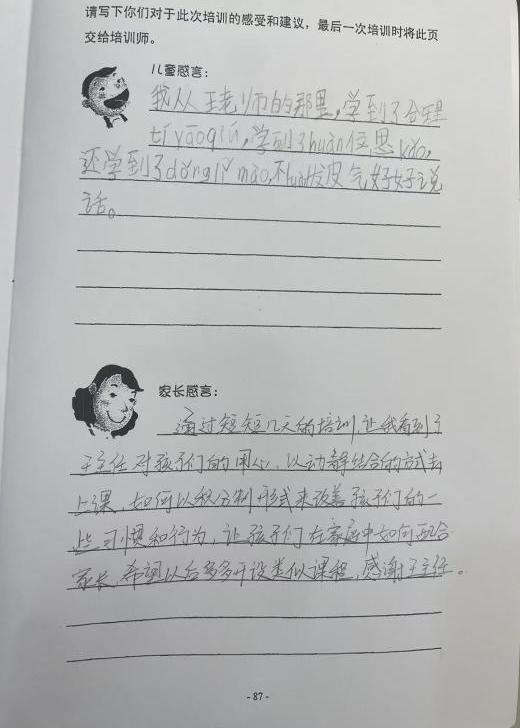 请写下你们对于此次培训的感受和建议，最后一次培训时将此页
交给培训师。
儿童感言：
我从王老师的那里，学到了合理
tí yāoqiú，学到了huàn位思kǎo，
还学到了dǒng lǐ mào，不luàn发皮气好好说
话。
家长感言：
通过短短几天的培训，让我看到了
王主任对孩子们的用心，以动静结合的方式去
上课，如何以积分制形式来改善孩子们的一
些习惯和行为，让孩子们在家庭中如何配合
家长，希望以后多多开设类似课程，感谢王主任。
- 87 -